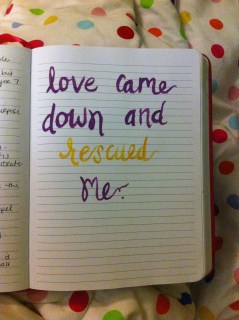 love came
down and
rescued
Me.